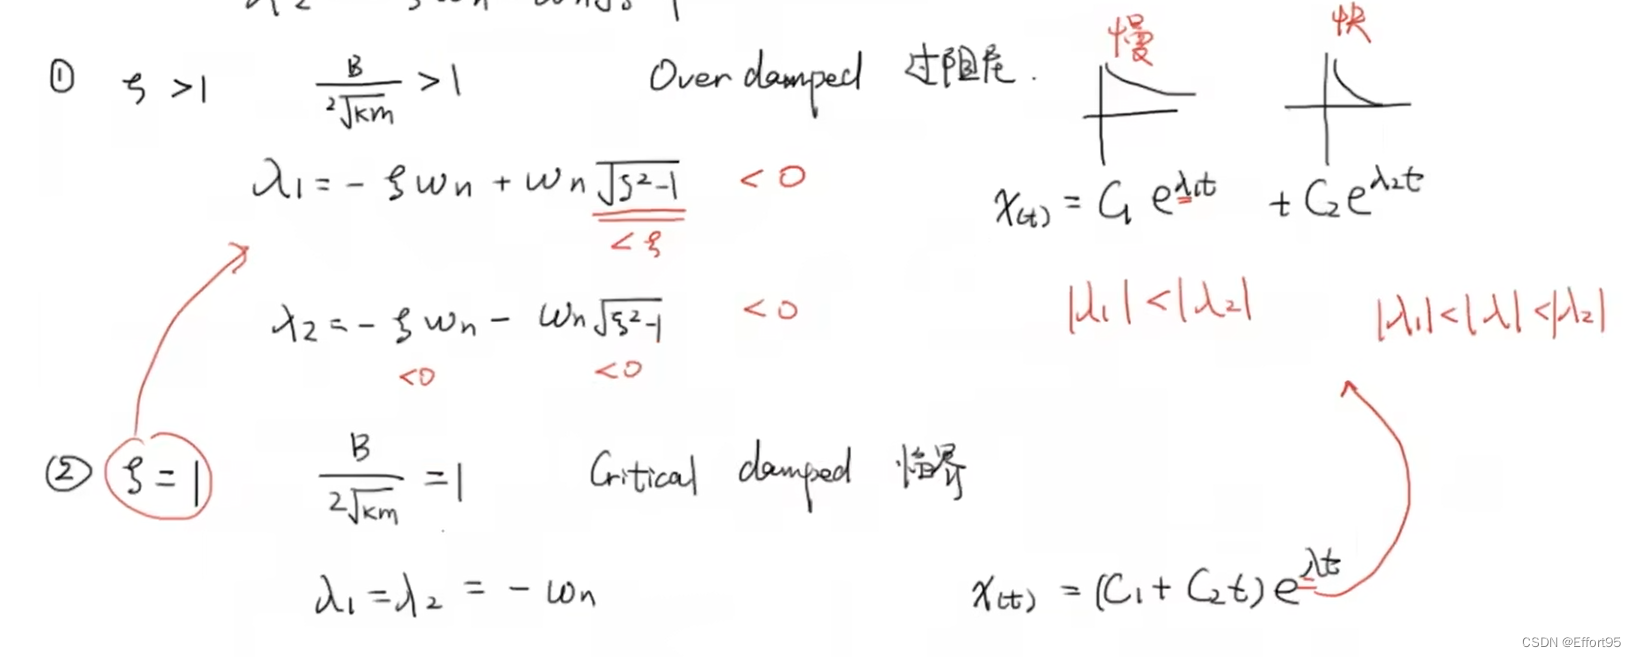 慢 快
① ξ >1 B/2√km >1 Over damped 过阻尼.
λ1 = - ξωn + ωn√ξ²-1 <0
<ξ
x(t) = C1 e^λ1t + C2 e^λ2t
λ2 = - ξωn - ωn√ξ²-1 <0
<0 <0
|λ1| < |λ2| |λ1| < |λ| < |λ2|
② ξ = 1 B/2√km = 1 Critical damped 临界
λ1 = λ2 = - ωn x(t) = (C1 + C2t) e^λt
CSDN @Effort95